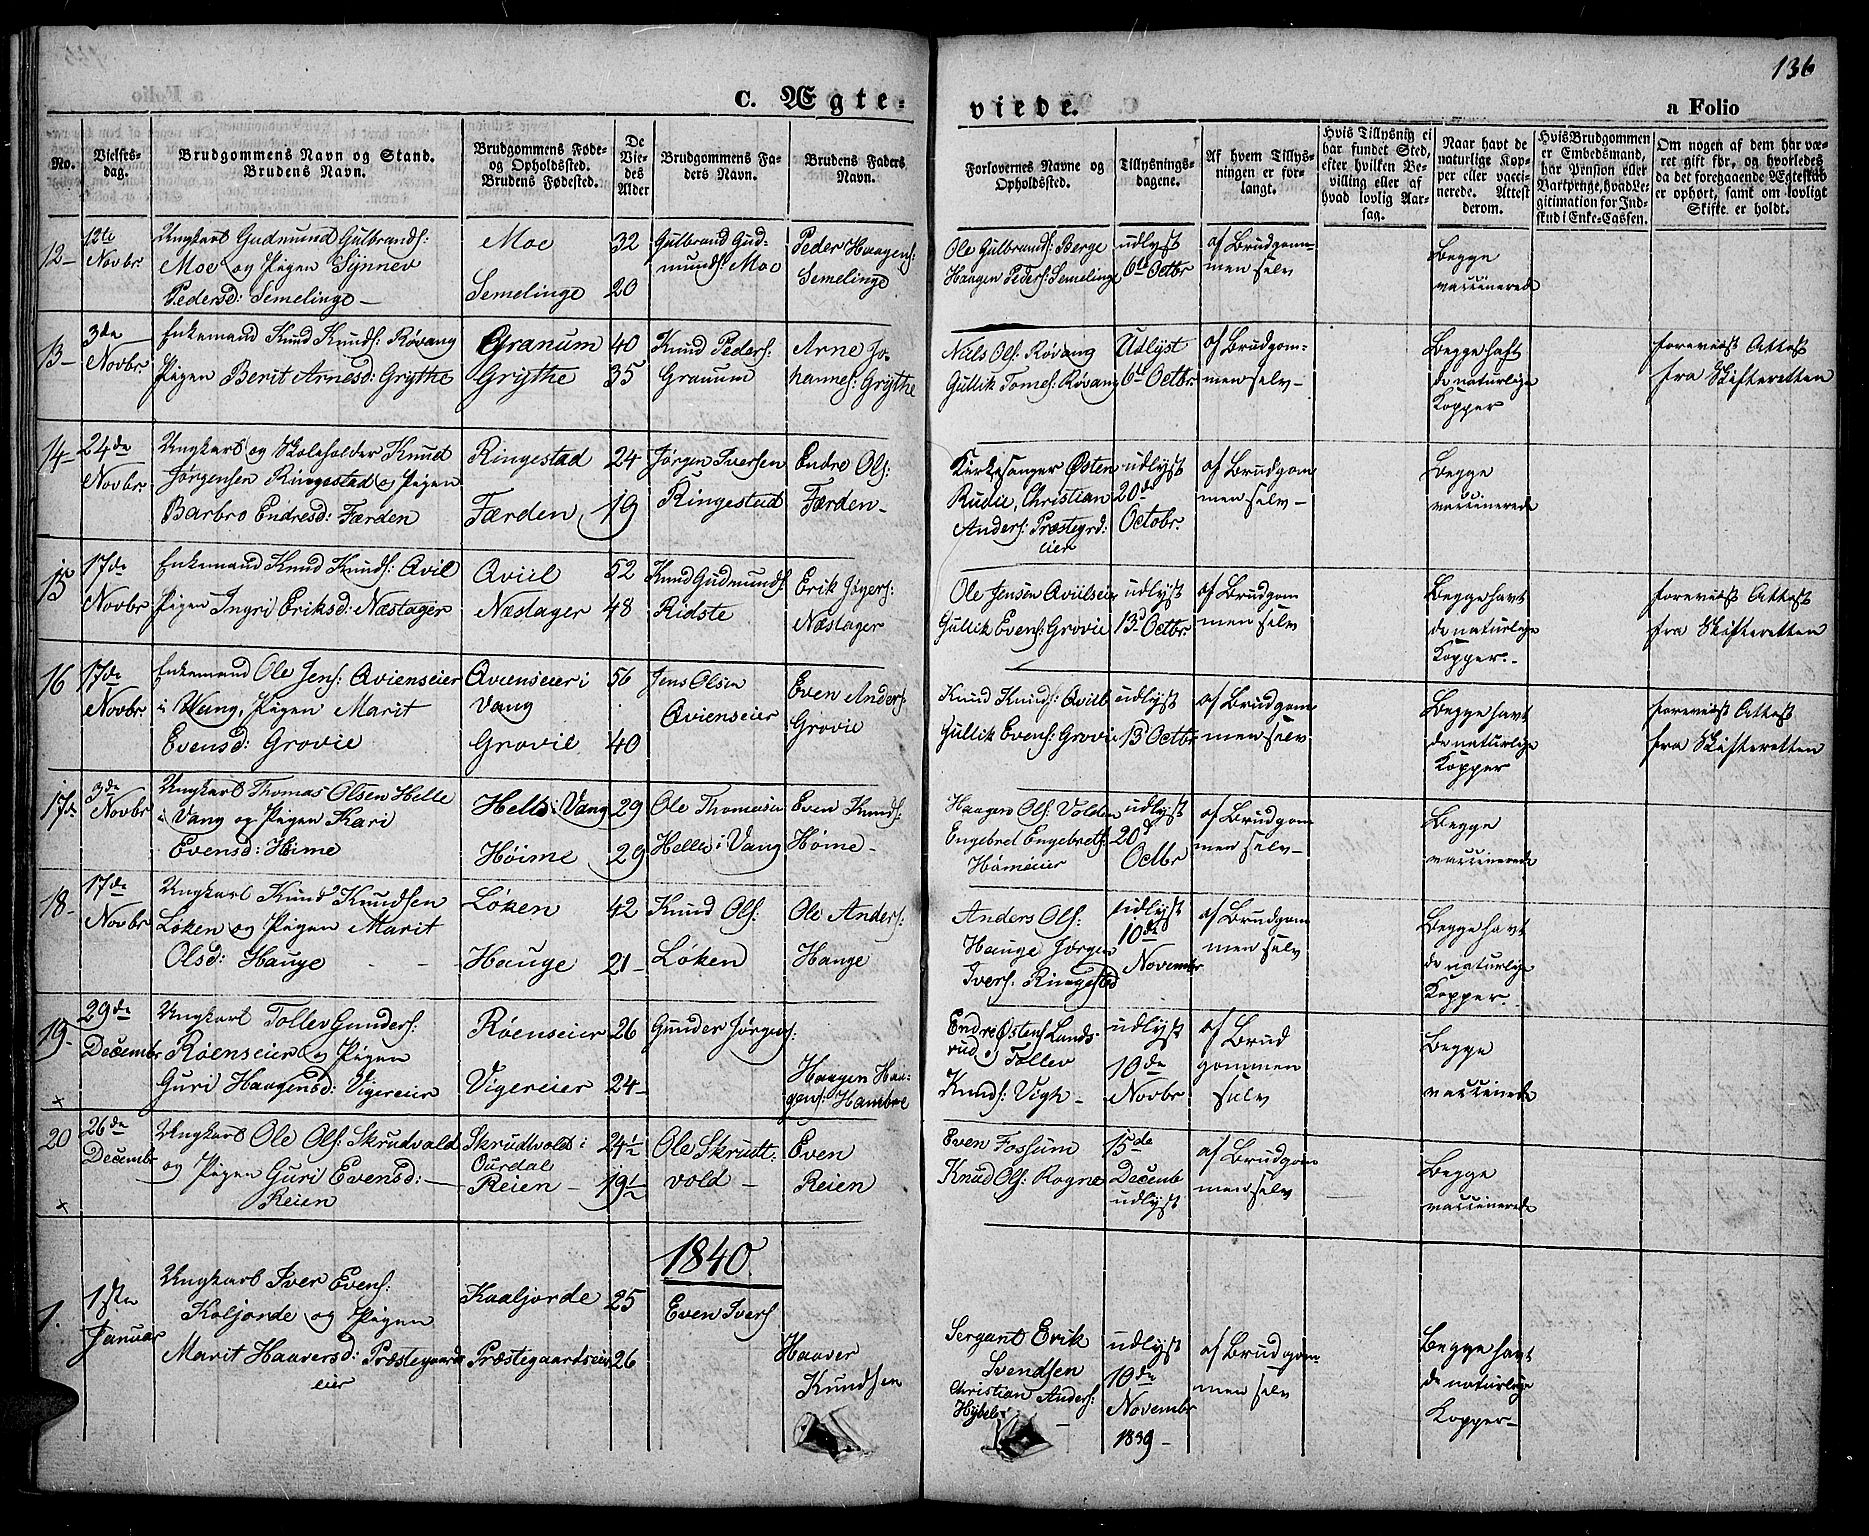 136
C. Ægte-
viede.
a Folio
No.
Vielses-
dag.
Brudgommens Navn og Stand.
Brudens Navn.
Brudgommens Føde-
og Opholdssted.
Brudens Fødested.
De
Vie-
des
Alder
Brudgommens Fa-
ders Navn.
Brudens Faders
Navn.
Forlovernes Navne og
Opholdssted.
Tillysnings-
dagene.
Af hvem Tillys-
ningen er for-
langt.
Hvis Tillysning ei
har fundet Sted,
efter hvilken Be-
villing eller af
hvad lovlig Aar-
sag.
Naar havt de
naturlige Kop-
per eller vacci-
nerede. Attest
derom.
Hvis Brudgommen
er Embedsmand,
har Pension eller
Vartpenge, hvad Le-
gitimation for Ind-
skud i Enke-Cassen.
Om nogen af dem har væ-
ret gift før, og hvorledes
da det foregaaende Ægteskab
er ophørt, samt om lovligt
Skifte er holdt.
12-
Novbr
Ungkarl Gudmund Gulbrands:
Moe og Pigen Synnev
Pedersd: Semelinge -
Moe
Semelinge
32
20
Gulbrand Gud-
munds: Moe
Peder Haagens:
Semelinge
Ole Gulbrands: Berge
Haagen Peders: Semelinge
udlyst
6te Octbr
af Brudgom-
men selv
Begge
vaccinerede
13-
3de
Novbr
Enkemand Knud Knuds: Røvang
Pigen Berit Arnesd: Grythe
Granum
Grythe
40
35
Knud Peders:
Granum
Arne Jo-
hannes: Grythe
Niels Ols: Røvang
Gullik Tomes: Røvang
Udlyst
6te Octbr
af Brudgom-
men selv-
Begge haft
de naturlige
Kopper
foreviist Attest
fra Skifteretten
14-
24de
Novbr
Ungkarl og Skoleholder Knud
Jørgensen Ringestad og Pigen
Barbro Endresd: Færden
Ringestad
Færden
24
19
Jørgen Iversen
Ringestad
Endre Ols:
Færden-
Kirkesanger Østen
Rudie, Christian
Anders: Præstegrd:
eier
udlyst
20de
Octobr.
af Brudgom
men selv-
Begge
vaccinerede
15
17de
Novbr
Enkemand Knud Knuds: Qviil
Pigen Ingri Eriksd: Næslager
Qviil
Næslager
52
48
Knud Gudmunds:
Ridste
Erik
Næslager
Ole Jensen
Gullik Evens: Grovie
udlyst
13d Octbr
af Brudgom
men selv
Begge havt
de naturlige
Kopper.-
foreviist Attest
fra Skifteretten
16
17de
Novbr
Enkemand Ole Jens: Qvienseier
i Vang, Pigen Marit
Evensd: Grovie
Qvienseier i
Vang
Grovie
56
40
Jens Olsen
Qvienseier
Even Anders:
Grovie
Knud Knuds: Qviil
Gullik Evens: Grovie
udlyst
13d Octbr
af Brudgom
men selv
Begge havt
de naturlige
Kopper
foreviist Attest
fra Skifteretten
17de
3de
Novbr
Ungkarl Thomas Olsen Helle
i Vang og Pigen Kari
Evensd: Høime
Helle i Vang
Høime
29
29
Ole Thomesen
Helle i Vang
Even Knuds:
Høime-
Haagen Ols: Volden
Engebret Engebrets:
udlyst
20d
Octbr
af Brudgom
men selv-
Begge
vaccinerede
18-
17de
Novbr
Ungkarl Knud Knudsen
Løken og Pigen Marit
Olsd: Hauge
Løken
Hauge
42
21-
Knud Ols:
Løken
Ole Anders:
Hauge
Anders Ols:
Hauge Jørgen
Ivers: Ringestad
udlyst
10de
Novembr
af Brudgom
men selv
Begge havt
de naturlige
Kopper.
19-
29de
Decembr
Ungkarl Tollev Gunders:
Røenseier og Pigen
Guri Haagensd: Vigereier
Røenseier
Vigereier
26
24-
Gunder Jørgens:
Haagen Haa-
gens:
Endre Østens Lands-
rud, Tollev
Knuds: Vigh-
udlyst
10de
Novbr
af Brud
gommen
selv
Begge
vaccinerede
20
26de
Decembr
Ungkarl Ole Ols: Skrudvold
og Pigen Guri Evensd:
Reien
Skrudvold i
Ourdal
Reien -
24½
19½
Ole Skrudt-
vold -
Even
Reien
Even Fossum
Knud Ols: Rogne
15de
Decemb
udlyst
af Brudgom
men selv
Begge
vaccinerede
1840.
1.
1ste
Januar
Ungkarl Iver Evens:
Kaljorde og Pigen
Marit Haaversd: Præstegaards
eier
Kaaljorde
Præstegaardseier
25
26
Even Ivers
Haaver
Knudsen
Sergant Erik
Svendsen
Christian Anders:
udlyst
10de
Novembr
1839-
af Brudgom
men selv
Begge havt
de naturlige
Kopper-